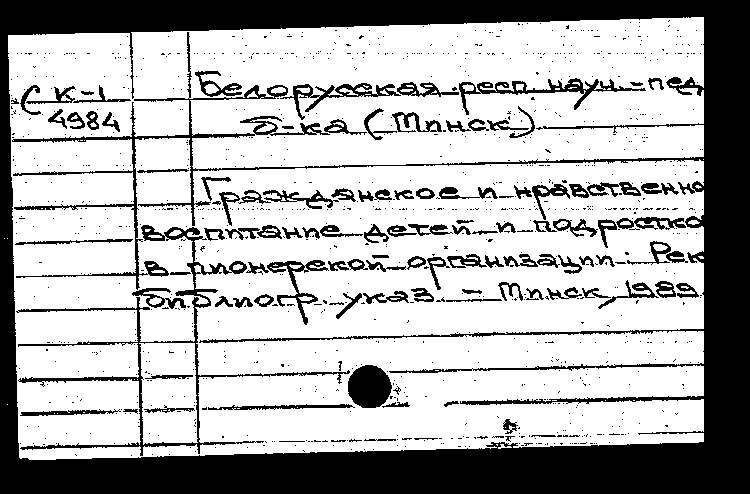 С К-1
4984
Белорусская респ. науч.-пед.
б-ка (Минск)
Гражданское и нравственно
воспитание детей и подростко
в пионерской организации: Рек
библиогр. указ. - Минск, 1989